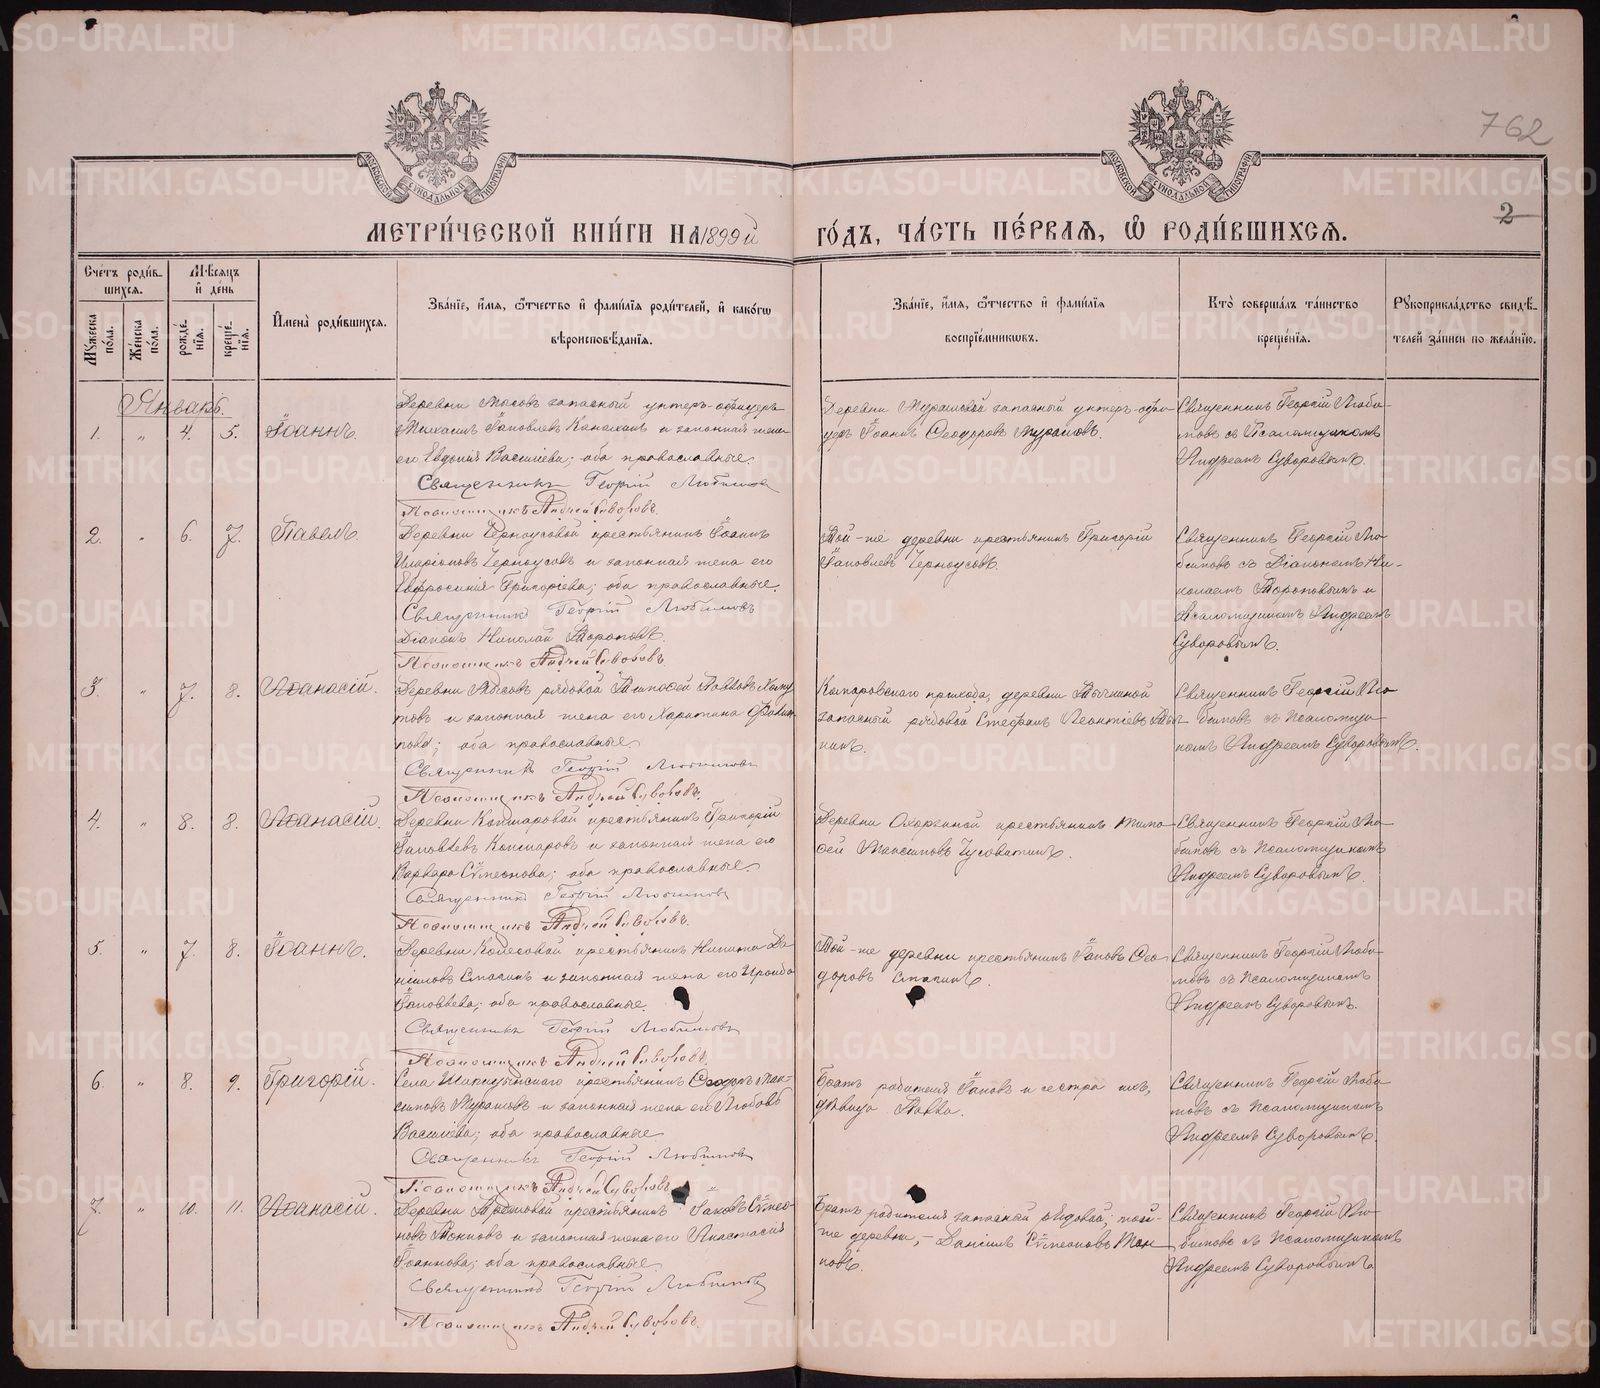 762
2
МОСКОВСКОЙ СѴНОДАЛЬНОЙ ТИПОГРАФІИ
МОСКОВСКОЙ СѴНОДАЛЬНОЙ ТИПОГРАФІИ
МЕТРИ́ЧЕСКОЙ КНИ́ГИ НА 1899й ГО́ДЪ, ЧА́СТЬ ПЕ́РВАЯ, Ѡ РОДИ́ВШИХСЯ.
Сче́тъ роди́в-
шихся.
Мѣсяцъ
и де́нь
Мꙋ́жеска по́ла.
Же́нска по́ла.
рожде́-
нїя.
креще́-
нїя.
И́мена роди́вшихся.
Зва́нїе, и́мя, ѻ҆́тчество и҆ фами́лїя роди́телей, и҆ како́гѡ
вѣроисповѣ́данїя.
Зва́нїе, и́мя, ѻ҆́тчество и҆ фами́лїя
воспрїе́мникѡвъ.
Кто̀ соверша́лъ та́инство
креще́нїя.
Рꙋкоприкла́дство свидѣ́-
телей за́писи по жела́нїю.
Январь.
1. „ 4. 5. Іоаннъ.
Деревни Мысовъ запасный унтеръ-офицеръ
Михаилъ Іаковлевъ и законная жена
его Евдокія Василіева; оба православные.
Священникъ Георгій Любимовъ
Псаломщикъ Андрей Суворовъ.
Деревни Мурашовой запасный унтеръ-офи-
церъ Іоаннъ Ѳеодоровъ Мурашовъ.
Священникъ Георгій Люби-
мовъ съ Псаломщикомъ
Андреемъ Суворовымъ.
2. „ 6. 7. Павелъ.
Деревни Черноусовой крестьянинъ Іоаннъ
Иларіоновъ Черноусовъ и законная жена его
Евфросинія Григоріева; оба православные.
Священникъ Георгій Любимовъ
Діаконъ Николай Топорковъ.
Псаломщикъ Андрей Суворовъ.
Той-же деревни крестьянинъ Григорій
Іаковлевъ Черноусовъ.
Священникъ Георгій Лю-
бимовъ съ Діакономъ Ни-
колаемъ и
Псаломщикомъ Андреемъ
Суворовымъ.
3. „ 7. 8. Аѳанасій.
Деревни Мысовъ рядовой Тимоѳей Павловъ
и законная жена его Харитина Филип-
пова; оба православные.
Священникъ Георгій Любимовъ
Псаломщикъ Андрей Суворовъ.
прихода, деревни
запасный рядовой Стефанъ Леонтіевъ
Священникъ Георгій Лю-
бимовъ съ Псаломщи-
комъ Андреемъ Суворовымъ.
4. „ 8. 8. Аѳанасій.
Деревни Кошкаровой крестьянинъ Григорій
Іаковлевъ Кошкаровъ и законная жена его
Варвара Сѵмеонова; оба православные.
Священникъ Георгій Любимовъ
Псаломщикъ Андрей Суворовъ.
Деревни крестьянинъ Тимо-
ѳей Максимовъ Чусовитинъ.
Священникъ Георгій Лю-
бимовъ съ Псаломщикомъ
Андреемъ Суворовымъ.
5. „ 7. 8. Іоаннъ.
Деревни Колесовой крестьянинъ Никита Да-
ніиловъ Спасинъ и законная жена его Ироида
Іаковлева; оба православные.
Священникъ Георгій Любимовъ
Псаломщикъ Андрей Суворовъ.
Той-же деревни крестьянинъ Іаковъ Ѳео-
доровъ Спасинъ.
Священникъ Георгій Люби-
мовъ съ Псаломщикомъ
Андреемъ Суворовымъ.
6. „ 8. 9. Григорій.
Села крестьянинъ Ѳеодоръ Мак-
симовъ Мурашовъ и законная жена его Любовь
Василіева; оба православные.
Священникъ Георгій Любимовъ
Псаломщикъ Андрей Суворовъ.
Братъ родителя Іаковъ и сестра ихъ,
дѣвица Павла.
Священникъ Георгій Люби-
мовъ съ Псаломщикомъ
Андреемъ Суворовымъ.
7. „ 10. 11. Аѳанасій.
Деревни крестьянинъ Іаковъ Сѵмео-
новъ и законная жена его Анастасія
Іоаннова; оба православные.
Священникъ Георгій Любимовъ
Псаломщикъ Андрей Суворовъ.
Братъ родителя запасный рядовой, той-
же деревни, — Даніилъ Сѵмеоновъ
Священникъ Георгій Лю-
бимовъ съ Псаломщикомъ
Андреемъ Суворовымъ.
METRIKI.GASO-URAL.RU